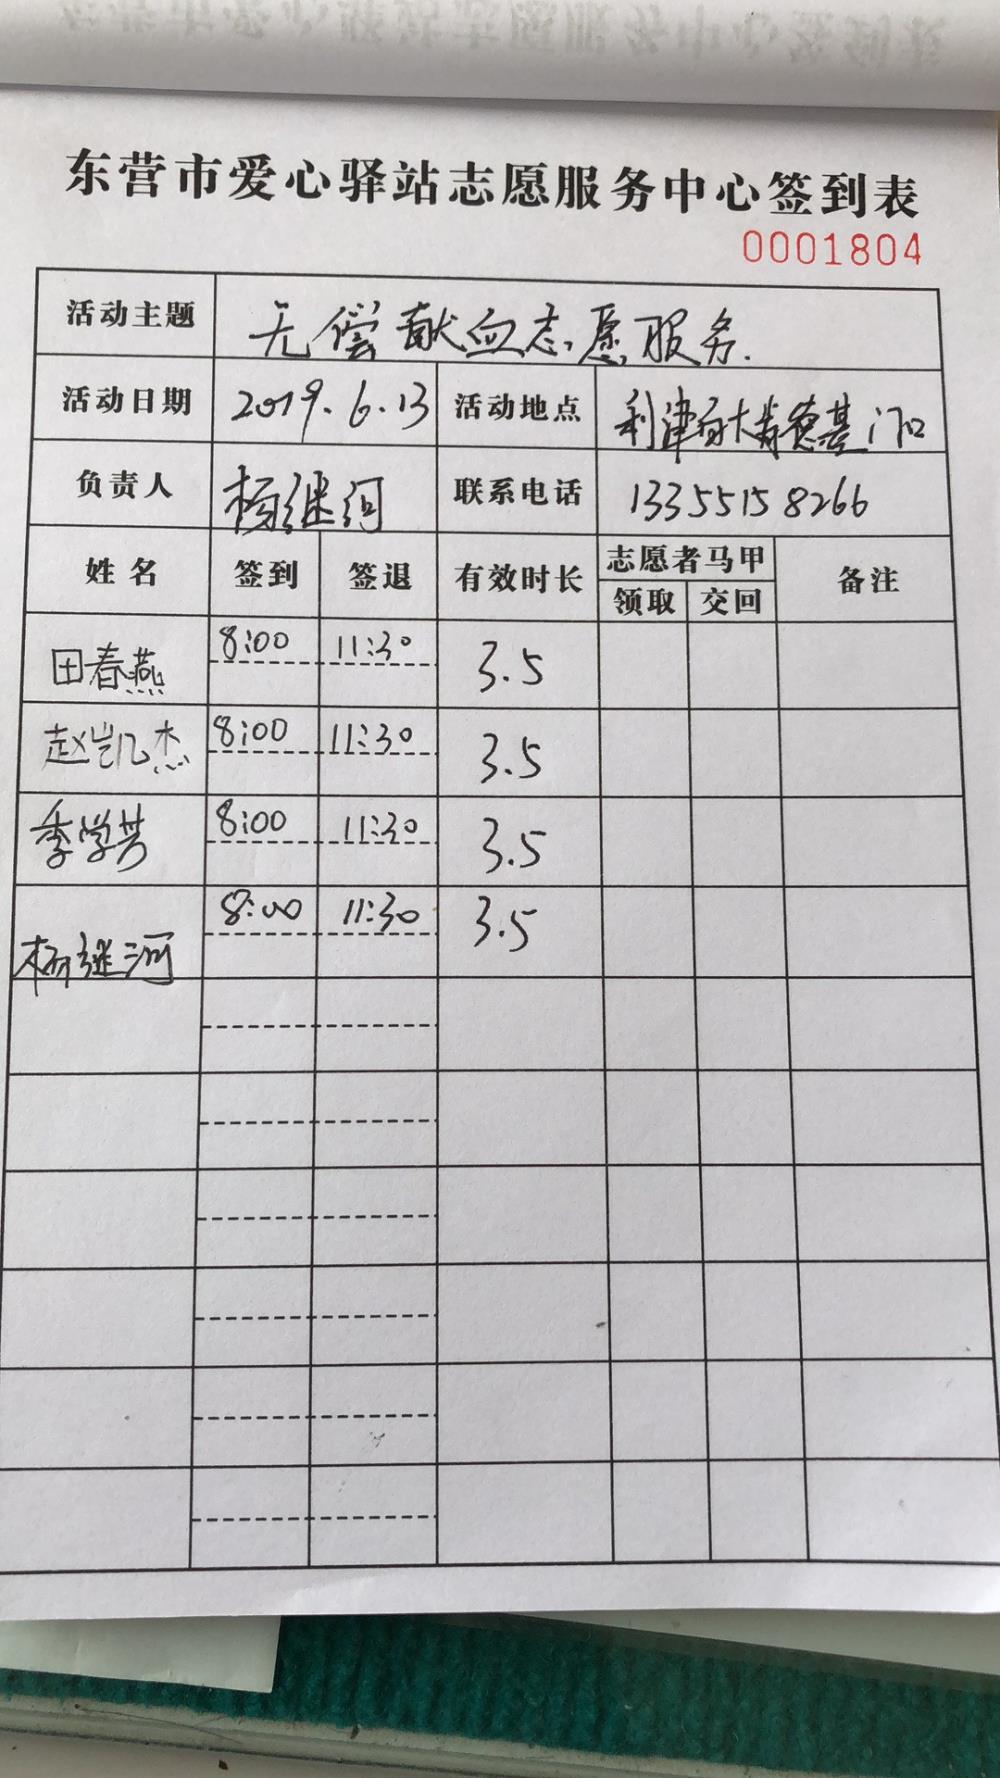 东营市爱心驿站志愿服务中心签到表
0001804
活动主题 无偿献血志愿服务.
活动日期 2019.6.13 活动地点 利津百大肯德基门口
负责人 杨继河 联系电话 13355158266
姓名 签到 签退 有效时长 志愿者马甲 领取 交回 备注
田春燕 8:00 11:30 3.5
赵凯杰 8:00 11:30 3.5
季学芳 8:00 11:30 3.5
杨继河 8:00 11:30 3.5